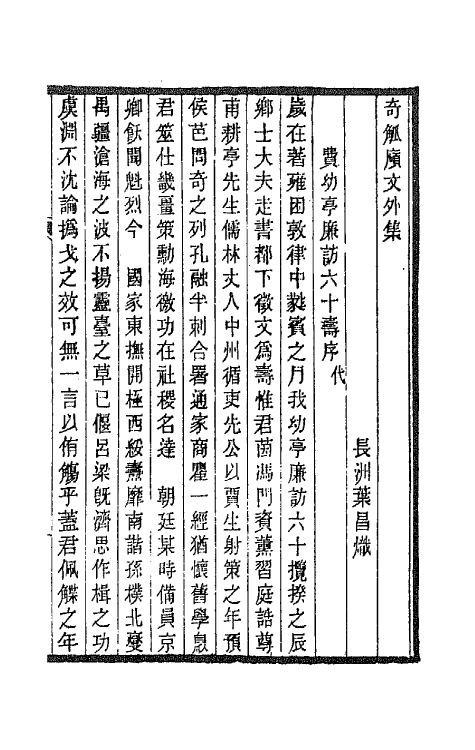 奇觚廎文外集
長洲葉昌熾
費幼亭廉訪六十壽序代
歲在著雍困敦律中蕤賓之月我幼亭廉訪六十攬揆之辰
鄉士大夫走書都下徵文爲壽惟君茵馮門資薰習庭誥尊
甫耕亭先生儒林丈人中州循吏先公以賈生射策之年預
侯芭問奇之列孔融半刺合署通家商瞿一經猶懷舊學息
君筮仕畿畺策勳海徼功在社稷名達　朝廷某時備員京
卿飫聞魁烈今　國家東撫開極西綏燾靡南諧孫檏北燮
禺疆滄海之波不揚靈臺之草已偃呂梁旣濟思作楫之功
虞淵不沈論撝戈之效可無一言以侑觴乎蓋君佩觽之年